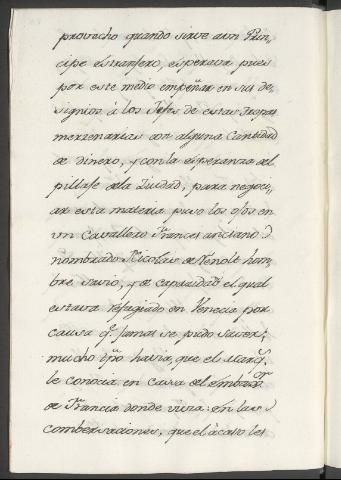 provecho quando sirve a un Prin-
cipe Estrangero, esperava pues
por este medio empeñar en sus de-
signios à los Jefes de estas tropas
mercenarias con alguna cantidad
de dinero, y con la esperanza del
pillaje de la Ciudad, para negoci-
ar esta materia puso los ojos en
un Cavallero Frances anciano
nombrado Nicolas de Renolt hom-
bre savio, y de capacidad el qual
estava refugiado en Venecia por
causa q.e Jamas se pudo saver;
mucho tpo havia, que el Marq.s
le conocia en casa del Embax.or
de Francia donde vivia: en las
combersaciones, que el acaso les